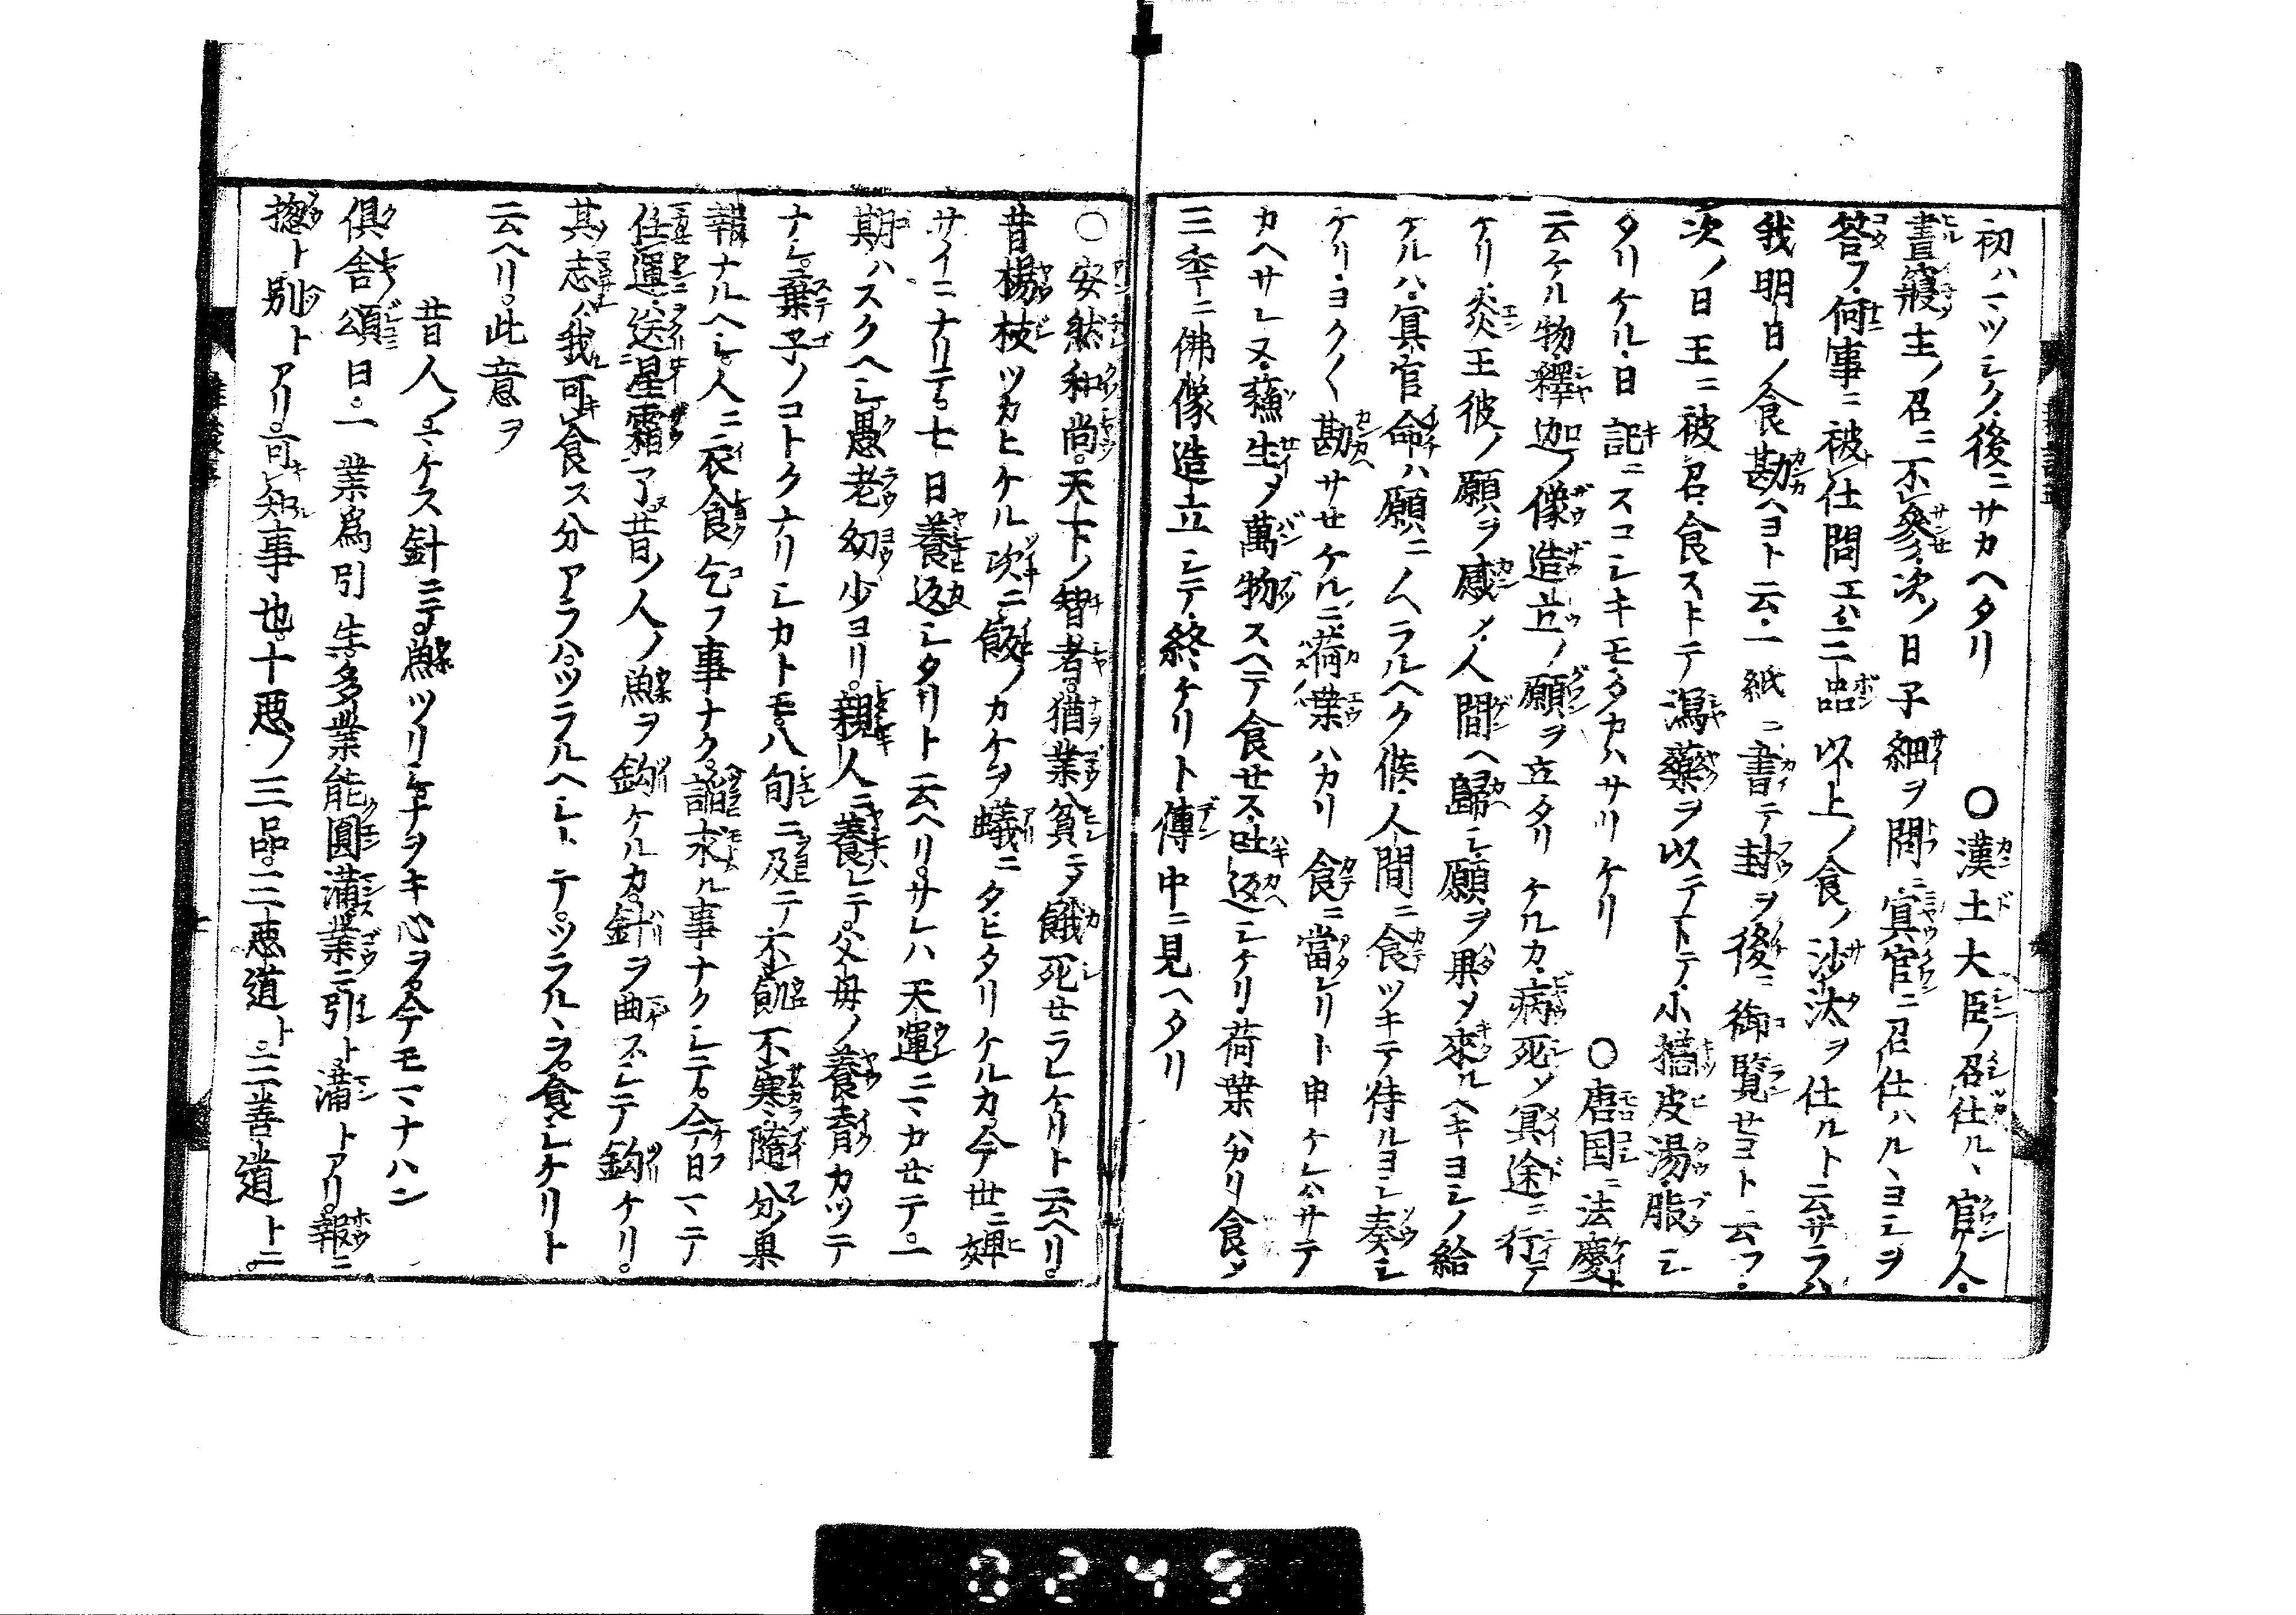 初ハマツシク後ニサカヘタリ　〇漢土大臣ノ召仕ル、官人・
晝寢主ノ召ニ不參次ノ日子細ヲ問ニ冥官ニ召仕ハル、ヨシヲ
答フ何事ニ被仕問エハ三品以上ノ食ノ沙汰ヲ仕ルト云サラハ
我明日ノ食勘ヘヨト云・一紙ニ書テ封ヲ後ニ御覽セヨト云フ・
次ノ日王ニ被召食ストテ瀉藥ヲ以テトテ小橘皮湯服シ
タリケル・日記ニスコシキモタカハサリケリ　〇唐国ニ法慶ト
云ケル物釋迦ノ像造立ノ願ヲ立タリケルカ病死ソ冥途ニ行テ
ケリ・炎王彼ノ願ヲ感メ人間ヘ歸シ願ヲ果メ來ルヘキヨシノ給
ケルハ冥官命ハ願ニノヘラルヘク候人間ニ食ツキテ侍ルヨシ奏シ
ケリ・ヨクヽ勘サセケルニ荷葉ハカリ食ニ當レリト申ケレハサテ
カヘサレ又蘓生メ萬物スヘテ食セス吐返シケリ荷葉ハカリ食メ
三年ニ佛像造立シテ終ケリト傳中ニ見ヘタリ
〇安然和尚。天下ノ智者。猶業貧ニテ餓死セラレケリト云ヘリ。
昔楊枝ツカヒケル次ニ飯ノカケヲ蟻ニタヒタリケルカ今世ニ婢
サイニナリテ七日養返シタリト云ヘリ。サレハ天運ニマカセテ。一
期ハスクヘシ愚老幼少ヨリ。親人ニ養レテ。父母ノ養育カツテ
ナシ。棄子ノコトクナリシカトモ。八旬ニ及ニテ不飢不寒隨分ノ果
報ナルヘシ。人ニ衣食乞フ事ナク。謟求ル事ナクシテ。今日マテ
任運送星霜了昔ノ人ノ鰥ヲ鈎ケルカ。針ヲ曲スシテ鈎ケリ。
其志ハ我可食ス分アラハ。ツラルヘシトテ。ツラル、ヲ。食シケリト
云ヘリ。此意ヲ
昔人ノマケス針ニテ鰥ツリシスナヲキ心ヲ今モマナハン
倶舎頌曰。一業爲引生多業能圓滿業ニ引ト滿トアリ。報ニ
揔ト別トアリ。可知事也十惡ノ三品。三惡道ト。三善道トニ。